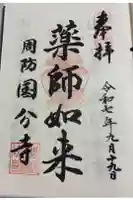 奉拝
令和七年九月十九日
薬師如来
周防国分寺